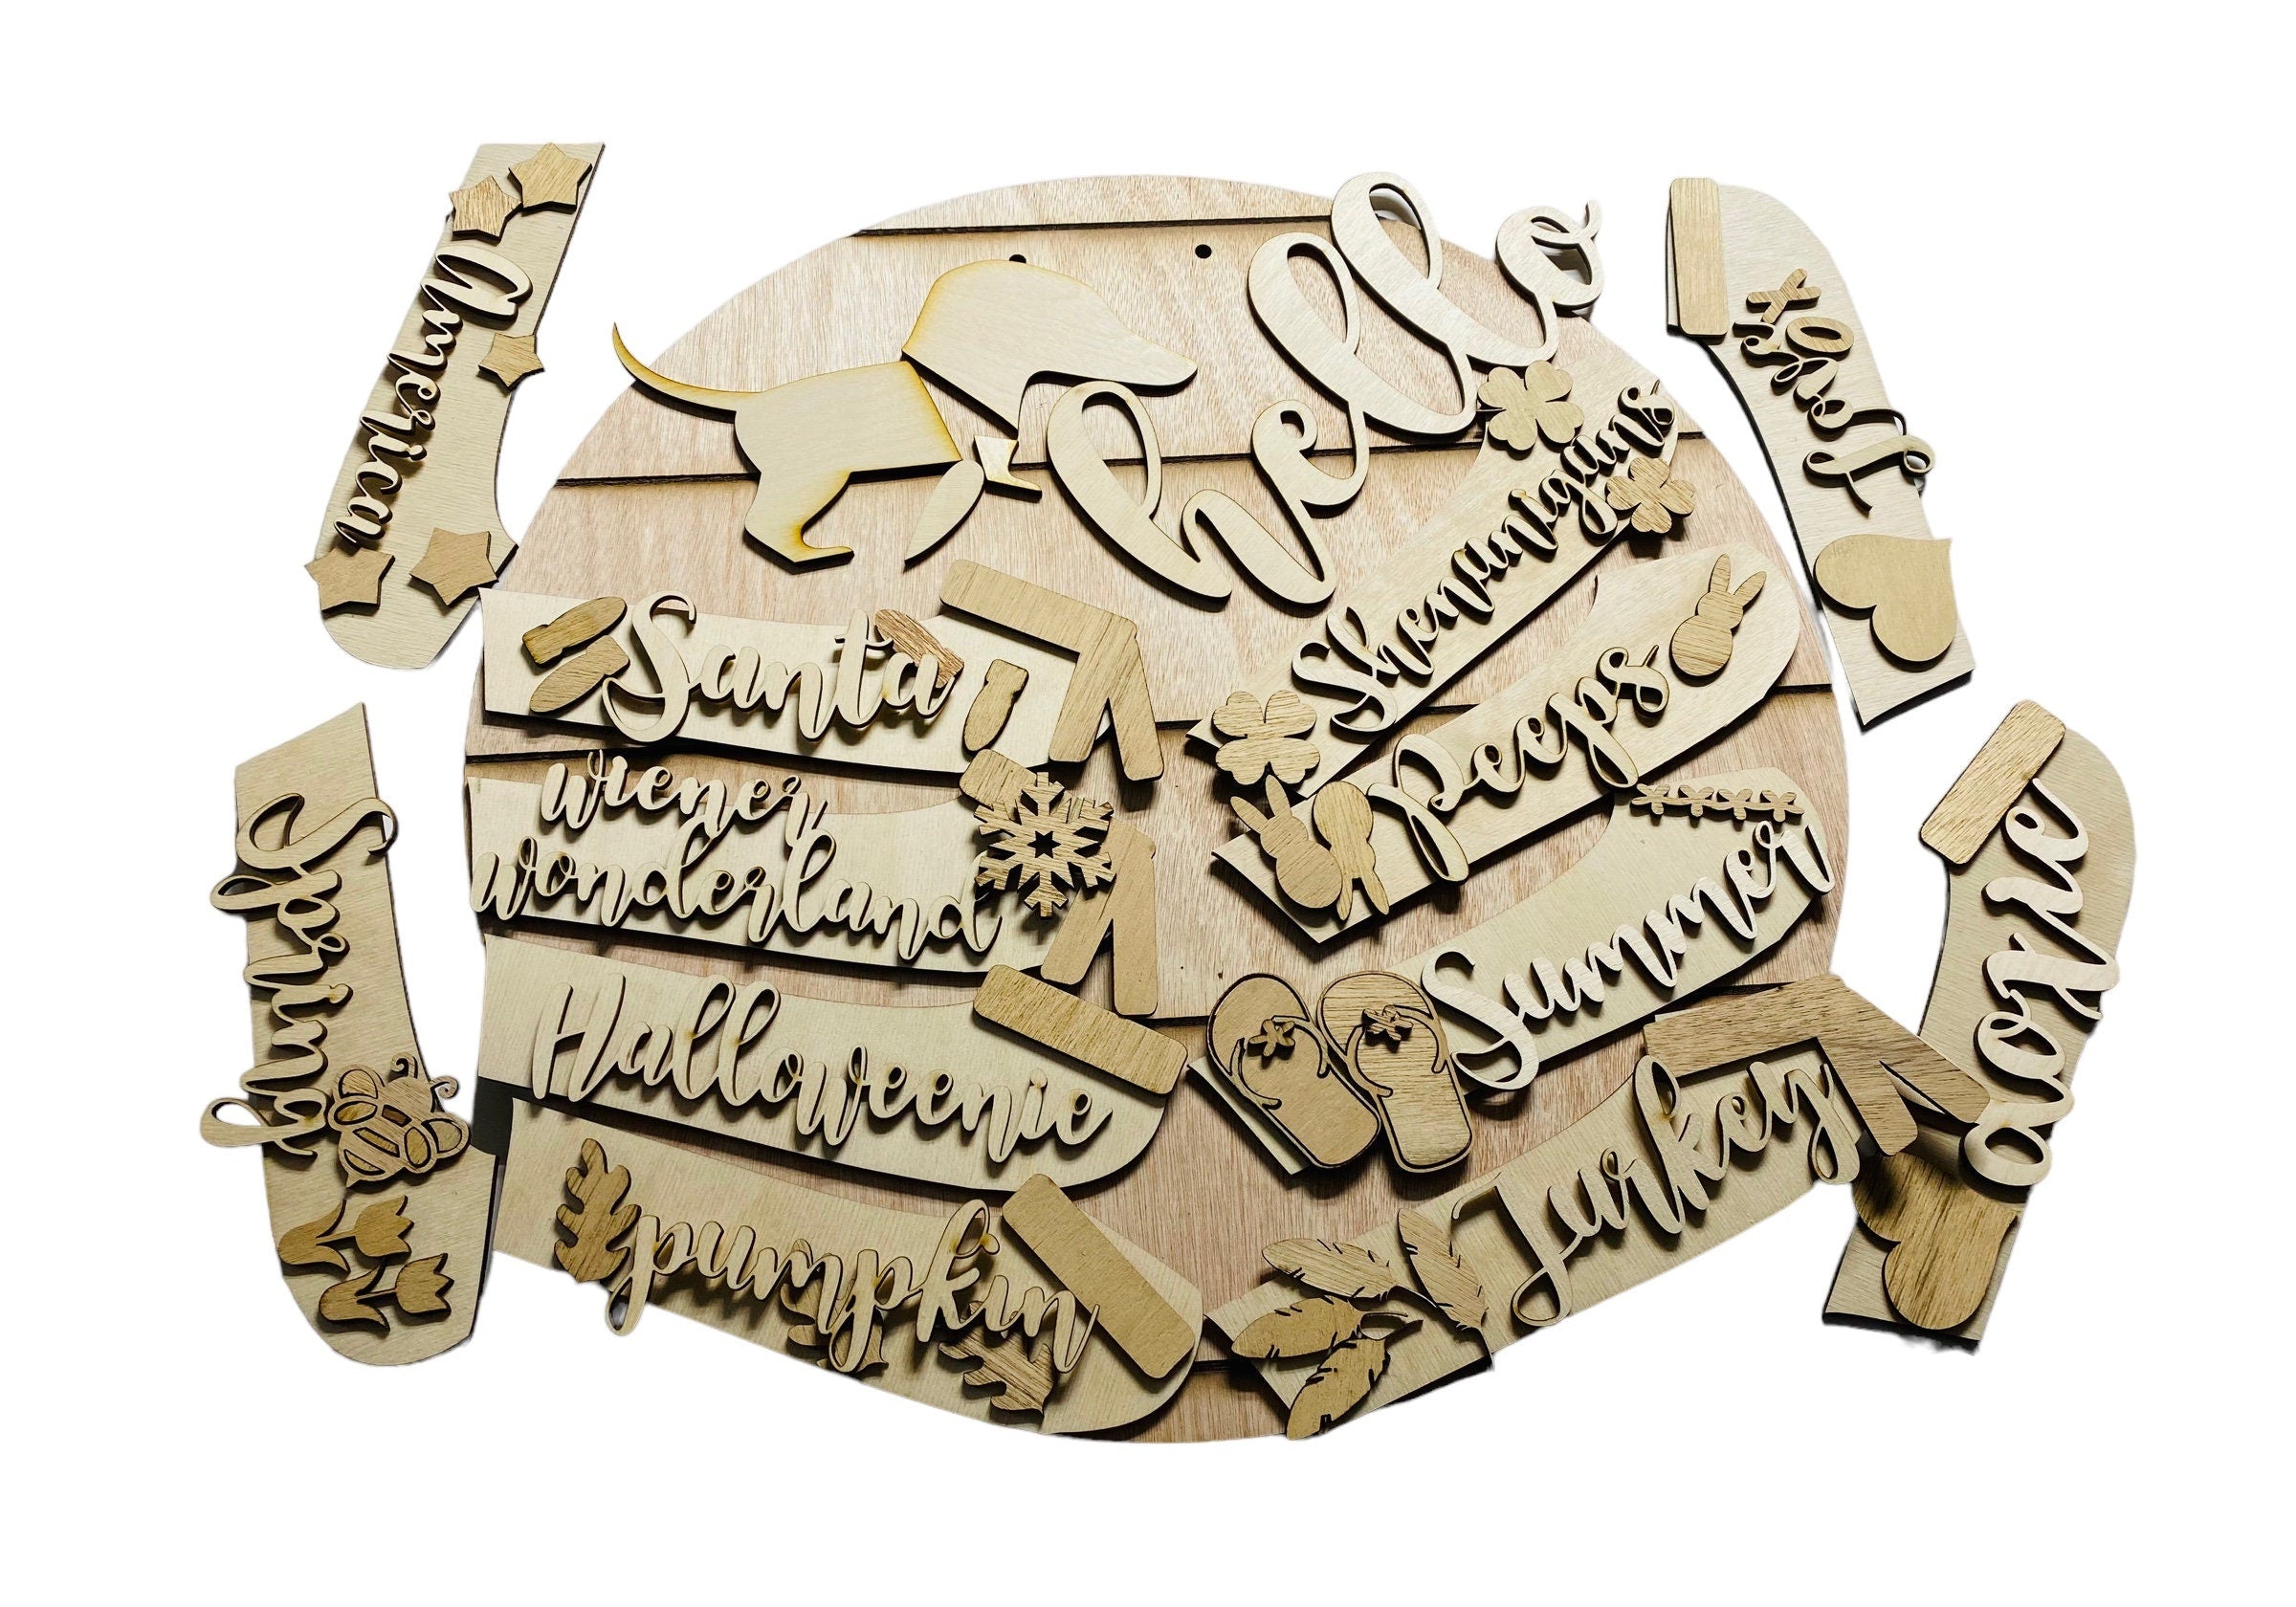 America
hello
Shenanigans
Santa
Peeps
wiener
wonderland
Summer
Halloweenie
Turkey
pumpkin
Spring
doxie